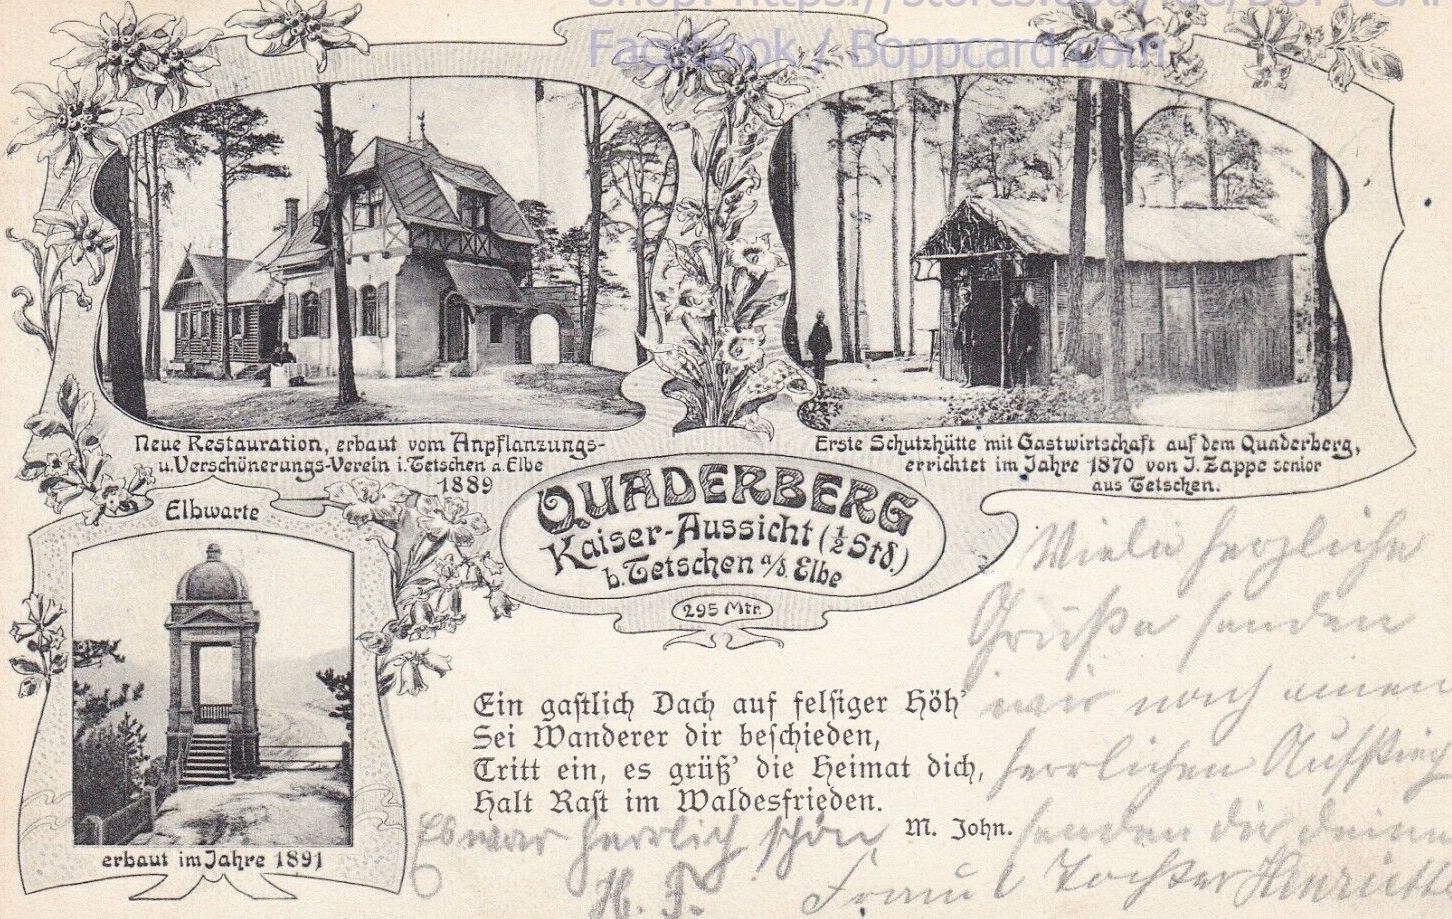 Shop: https://stores.ebay.de/BOPPCAR
Facebook / Boppcard.com
Neue Restauration, erbaut vom Anpflanzungs-
u. Verschönerungs-Verein i. Tetschen a. Elbe
1889
Erste Schutzhütte mit Gastwirtschaft auf dem Quaderberg,
errichtet im Jahre 1870 von J. Zappe senior
aus Tetschen.
Elbwarte
QUADERBERG
Kaiser-Aussicht (½ Std.)
b. Tetschen a/d. Elbe
295 Mtr.
erbaut im Jahre 1891
Ein gastlich Dach auf felsiger Höh'
Sei Wanderer dir beschieden,
Tritt ein, es grüß' die Heimat dich,
Halt Rast im Waldesfrieden.
M. John.
Viele herzliche
Grüße senden
wir nach einem
herrlichen Aufstieg
senden dir deine
Frau Tochter Henriette
Es war herrlich schön
H. F.